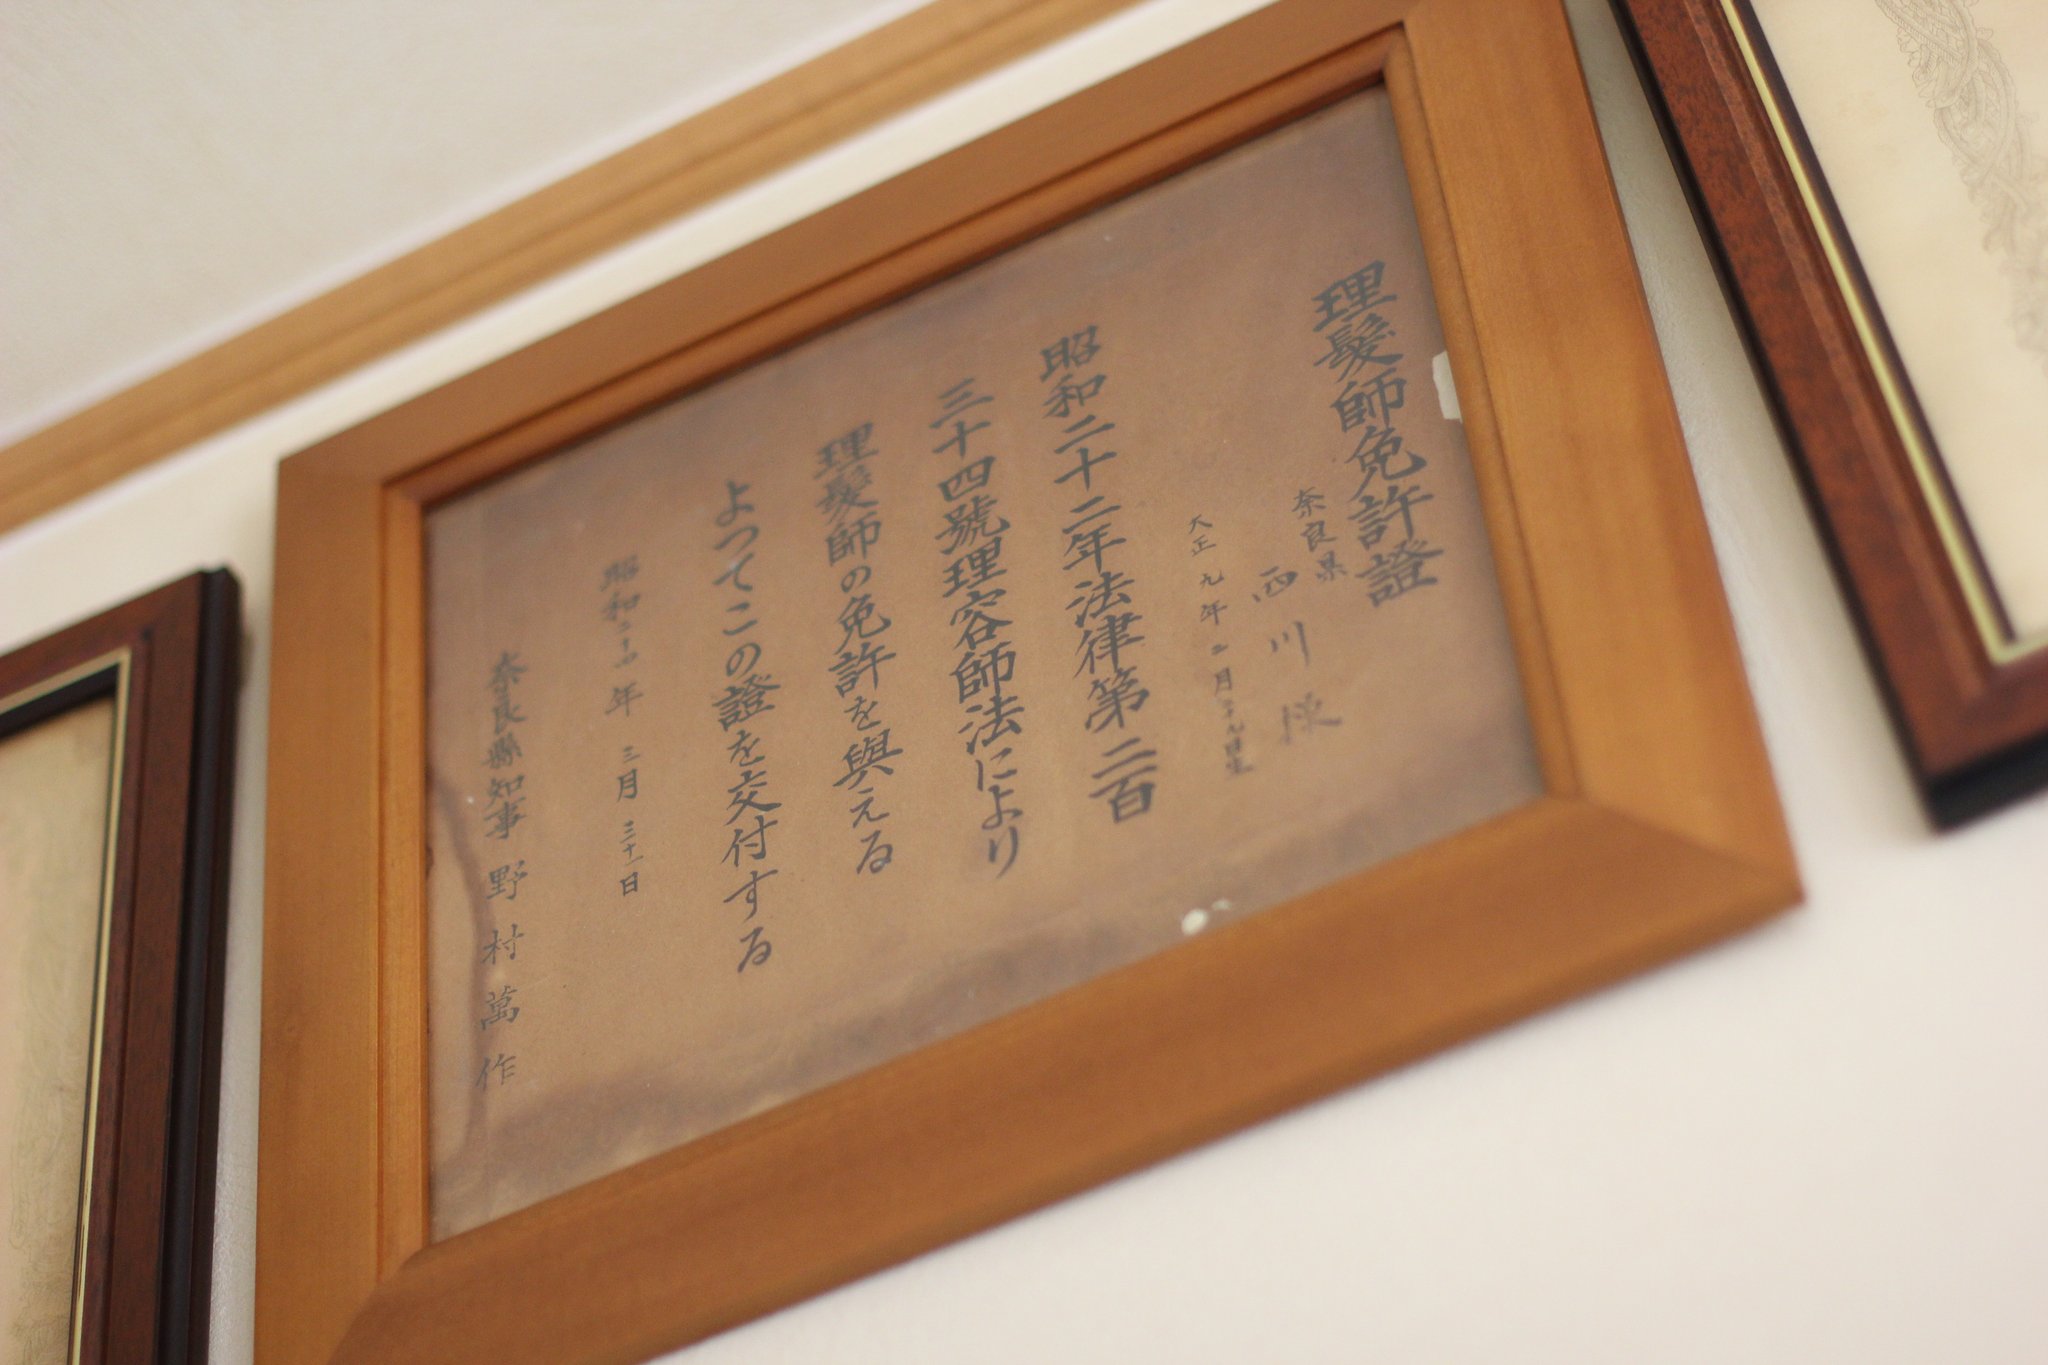 理髮師免許證
奈良県
西川
大正九年二月二十九日生
昭和二十二年法律第二百
三十四號理容師法により
理髮師の免許を與える
よつてこの證を交付する
昭和二十四年三月三十一日
奈良縣知事野村萬作